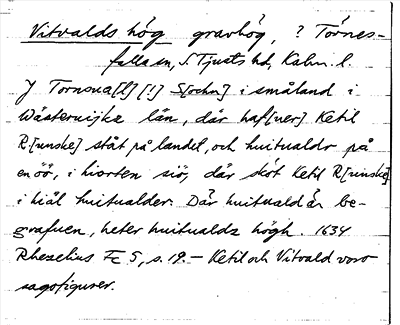 Vitvalds hög gravhög, ? Törnes-
falla sn, S Tjusts hd, Kalm. l.
J Tornsua[l] [!] S[ochn] i småland i
Wästeruijks län, där haf[uer] Ketil
R[unske] ståt på landet, och huitualdr på
en öö, i hiorten siö, där sköt Ketil R[unske]
i hiäl huitualder. Där huituald är be-
grafuen, heter huitualdz högh. 1634
Rhezelius Fc 5, s. 19. – Ketil och Vitvald voro
sagofigurer.